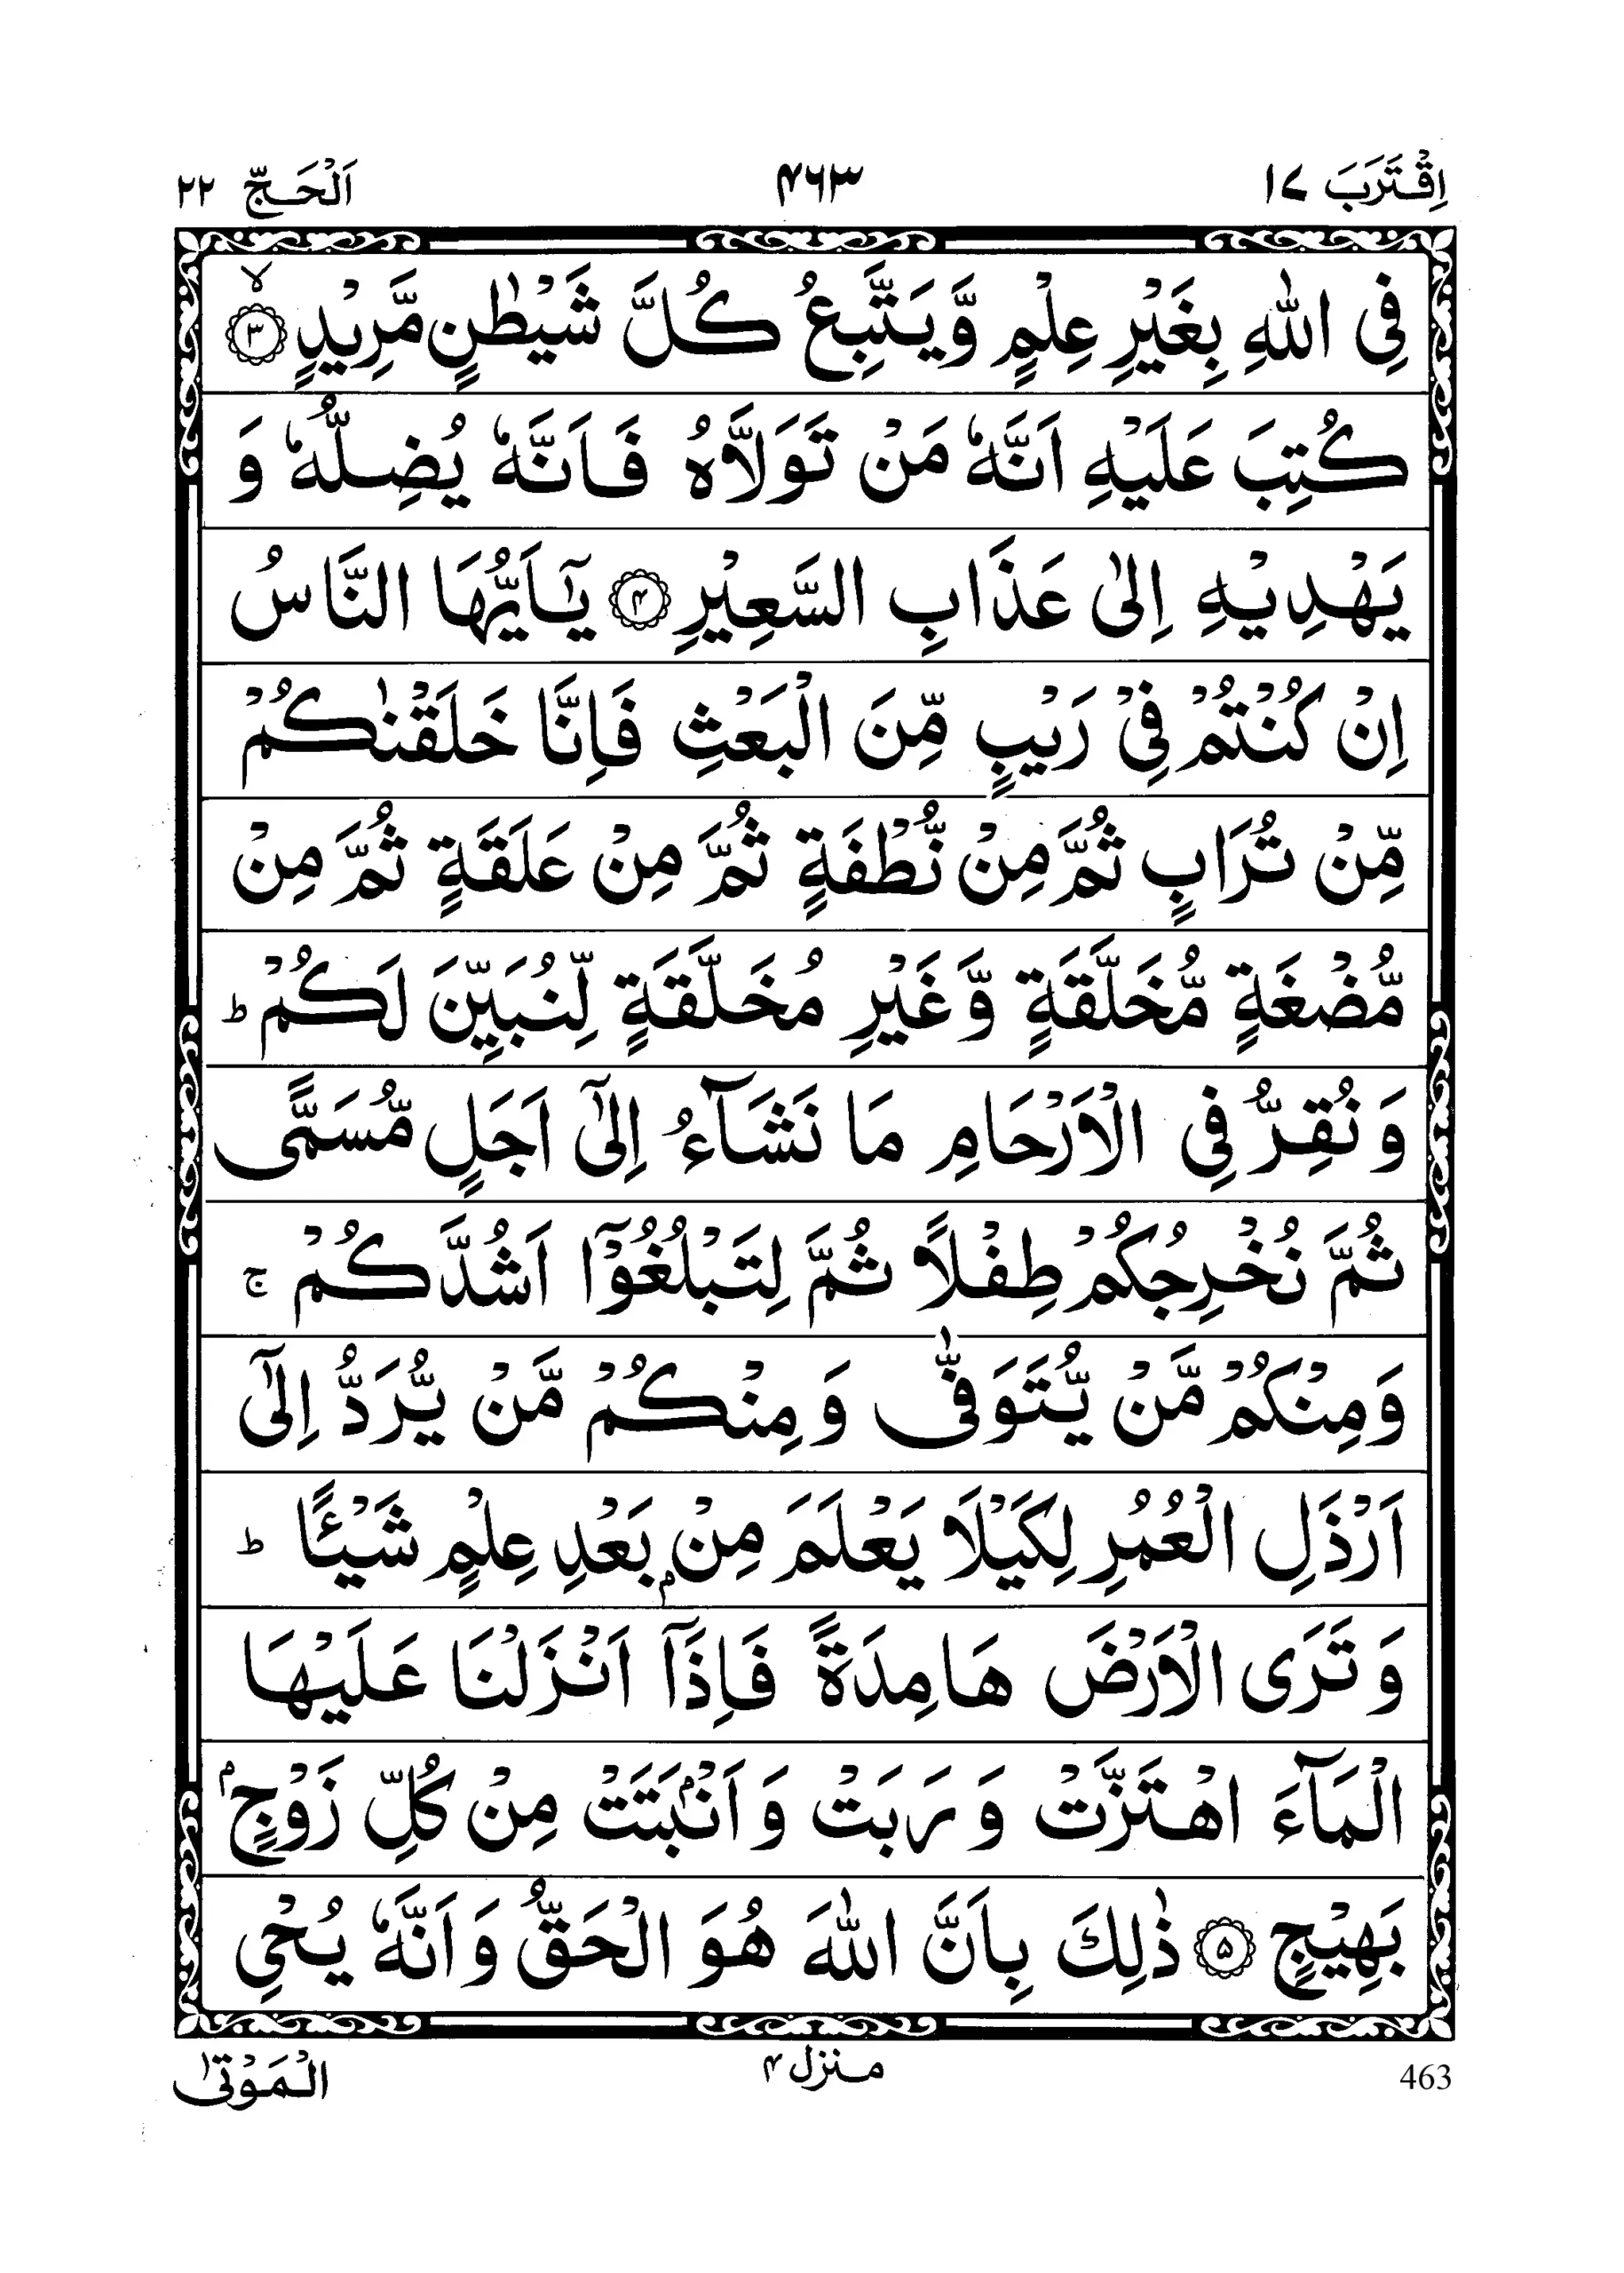 اِقْتَرَبَ ١٧ ۴۶۳ اَلْحَجّ ٢٢
فِى اللّٰهِ بِغَيْرِ عِلْمٍ وَّيَتَّبِعُ كُلَّ شَيْطٰنٍ مَّرِيْدٍ ۙ﴿٣﴾
كُتِبَ عَلَيْهِ اَنَّهٗ مَنْ تَوَلَّاهُ فَاَنَّهٗ يُضِلُّهٗ وَ
يَهْدِيْهِ اِلٰى عَذَابِ السَّعِيْرِ ﴿۴﴾ يٰۤاَيُّهَا النَّاسُ
اِنْ كُنْتُمْ فِىْ رَيْبٍ مِّنَ الْبَعْثِ فَاِنَّا خَلَقْنٰكُمْ
مِّنْ تُرَابٍ ثُمَّ مِنْ نُّطْفَةٍ ثُمَّ مِنْ عَلَقَةٍ ثُمَّ مِنْ
مُّضْغَةٍ مُّخَلَّقَةٍ وَّغَيْرِ مُخَلَّقَةٍ لِّنُبَيِّنَ لَكُمْ ؕ
وَنُقِرُّ فِى الْاَرْحَامِ مَا نَشَآءُ اِلٰٓى اَجَلٍ مُّسَمًّى
ثُمَّ نُخْرِجُكُمْ طِفْلًا ثُمَّ لِتَبْلُغُوْۤا اَشُدَّكُمْ ۚ
وَمِنْكُمْ مَّنْ يُّتَوَفّٰى وَمِنْكُمْ مَّنْ يُّرَدُّ اِلٰٓى
اَرْذَلِ الْعُمُرِ لِكَيْلَا يَعْلَمَ مِنْۢ بَعْدِ عِلْمٍ شَيْـًٔا ؕ
وَتَرَى الْاَرْضَ هَامِدَةً فَاِذَاۤ اَنْزَلْنَا عَلَيْهَا
الْمَآءَ اهْتَزَّتْ وَرَبَتْ وَاَنْۢبَتَتْ مِنْ كُلِّ زَوْجٍۢ
بَهِيْجٍ ﴿۵﴾ ذٰلِكَ بِاَنَّ اللّٰهَ هُوَ الْحَقُّ وَاَنَّهٗ يُحْىِ
463 منزل ۴ الْمَوْتٰى